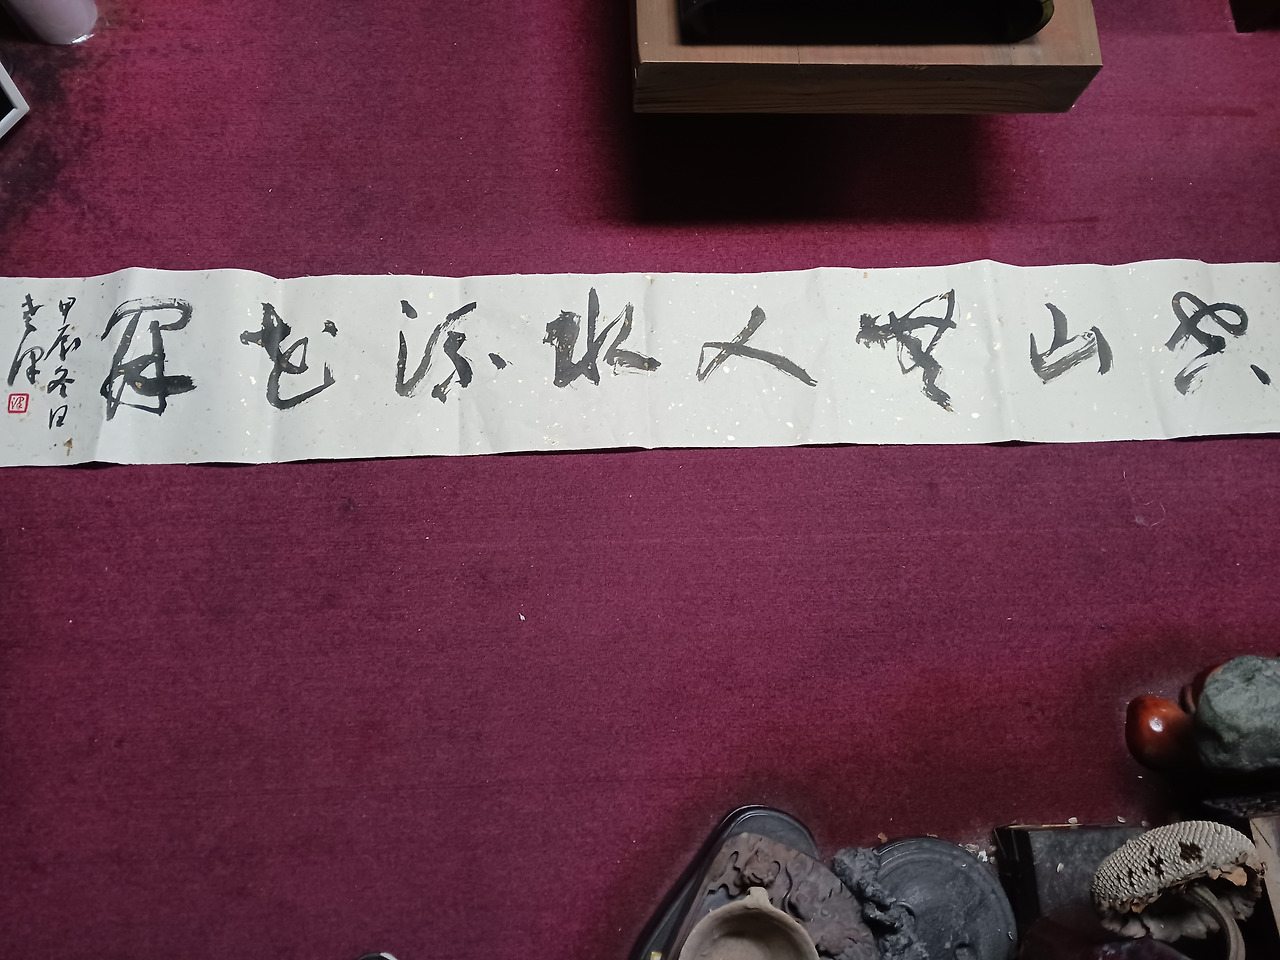 空山無人水流花開
甲辰冬日